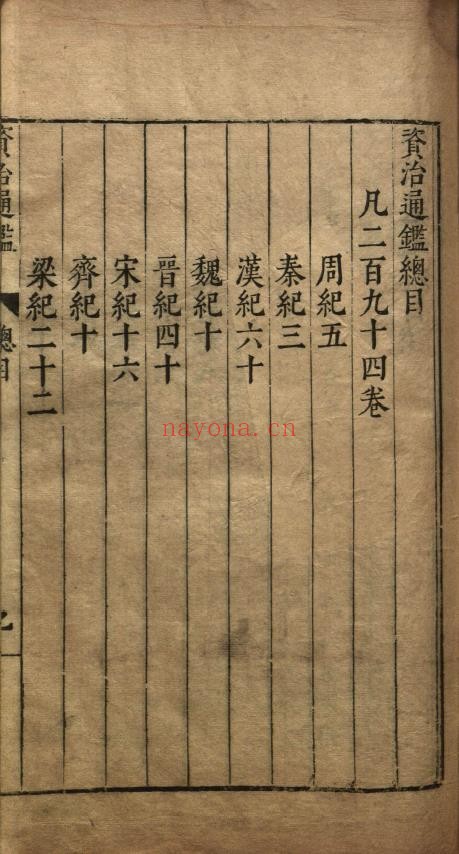 資治通鑑總目
凡二百九十四卷
周紀五
秦紀三
漢紀六十
魏紀十
晉紀四十
宋紀十六
齊紀十
梁紀二十二
資治通鑑 總目
nayona.cn